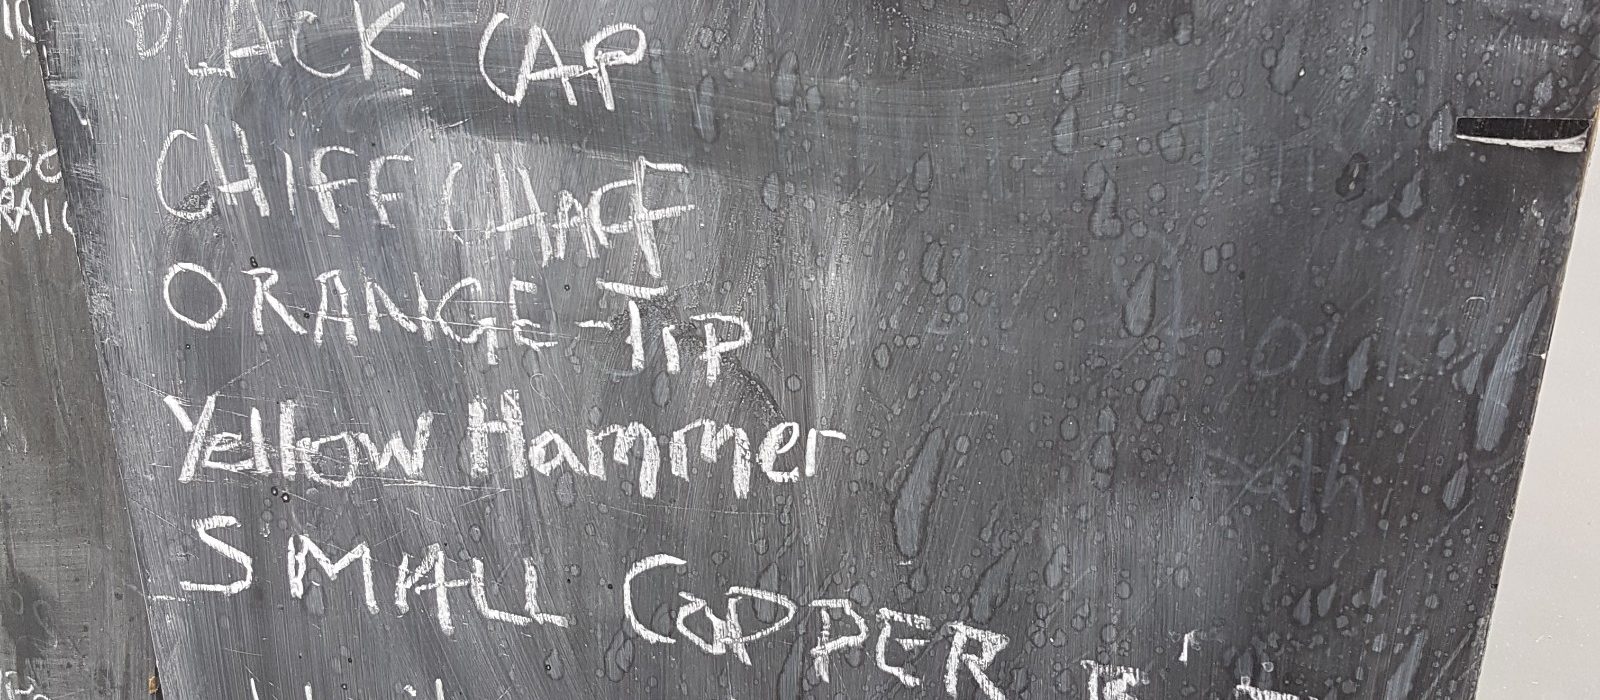 BLACK CAP
CHIFF CHAFF
ORANGE-TIP
Yellow Hammer
SMALL COPPER